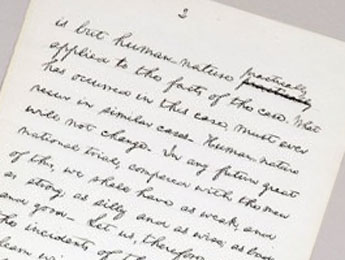 3
is but human-nature practically
applied to the facts of the case. What
has occurred in this case, must ever
recur in similar cases. Human-nature
will not change. In any future great
national trial, compared with the men
of this, we shall have as weak, and
as strong; as silly and as wise; as bad
and good. Let us, therefore
the incidents of th
learn wi